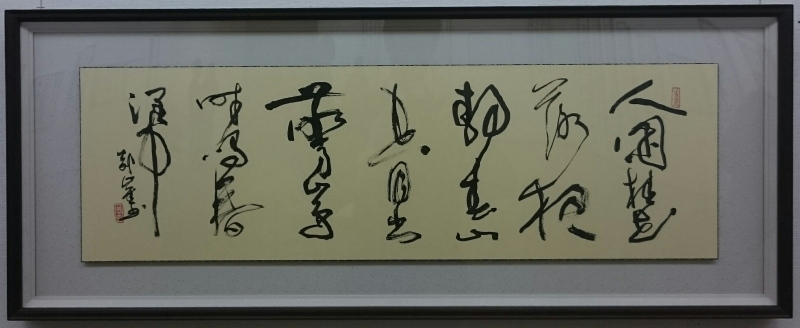 人閒桂花
落夜
靜春山
空月出
驚山鳥
時鳴春
澗中